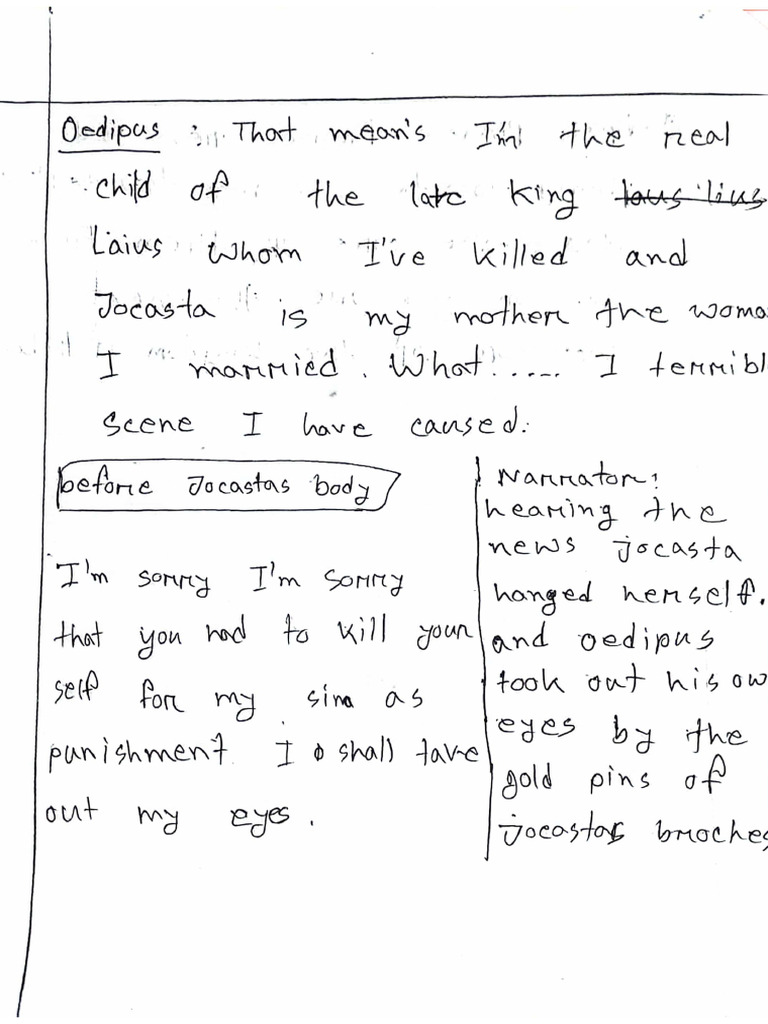 Oedipus : That mean's I'm the real
child of the late King ~~laus lius~~
Laius whom I've killed and
Jocasta is my mother the woma
I married. What..... I terribl
scene I have caused.
before Jocastas body
I'm sorry I'm sorry
that you had to kill your
self for my sin as
punishment I shall take
out my eyes.
Narrator:
hearing the
news jocasta
hanged herself.
and oedipus
took out his ow
eyes by the
gold pins of
jocastas broches